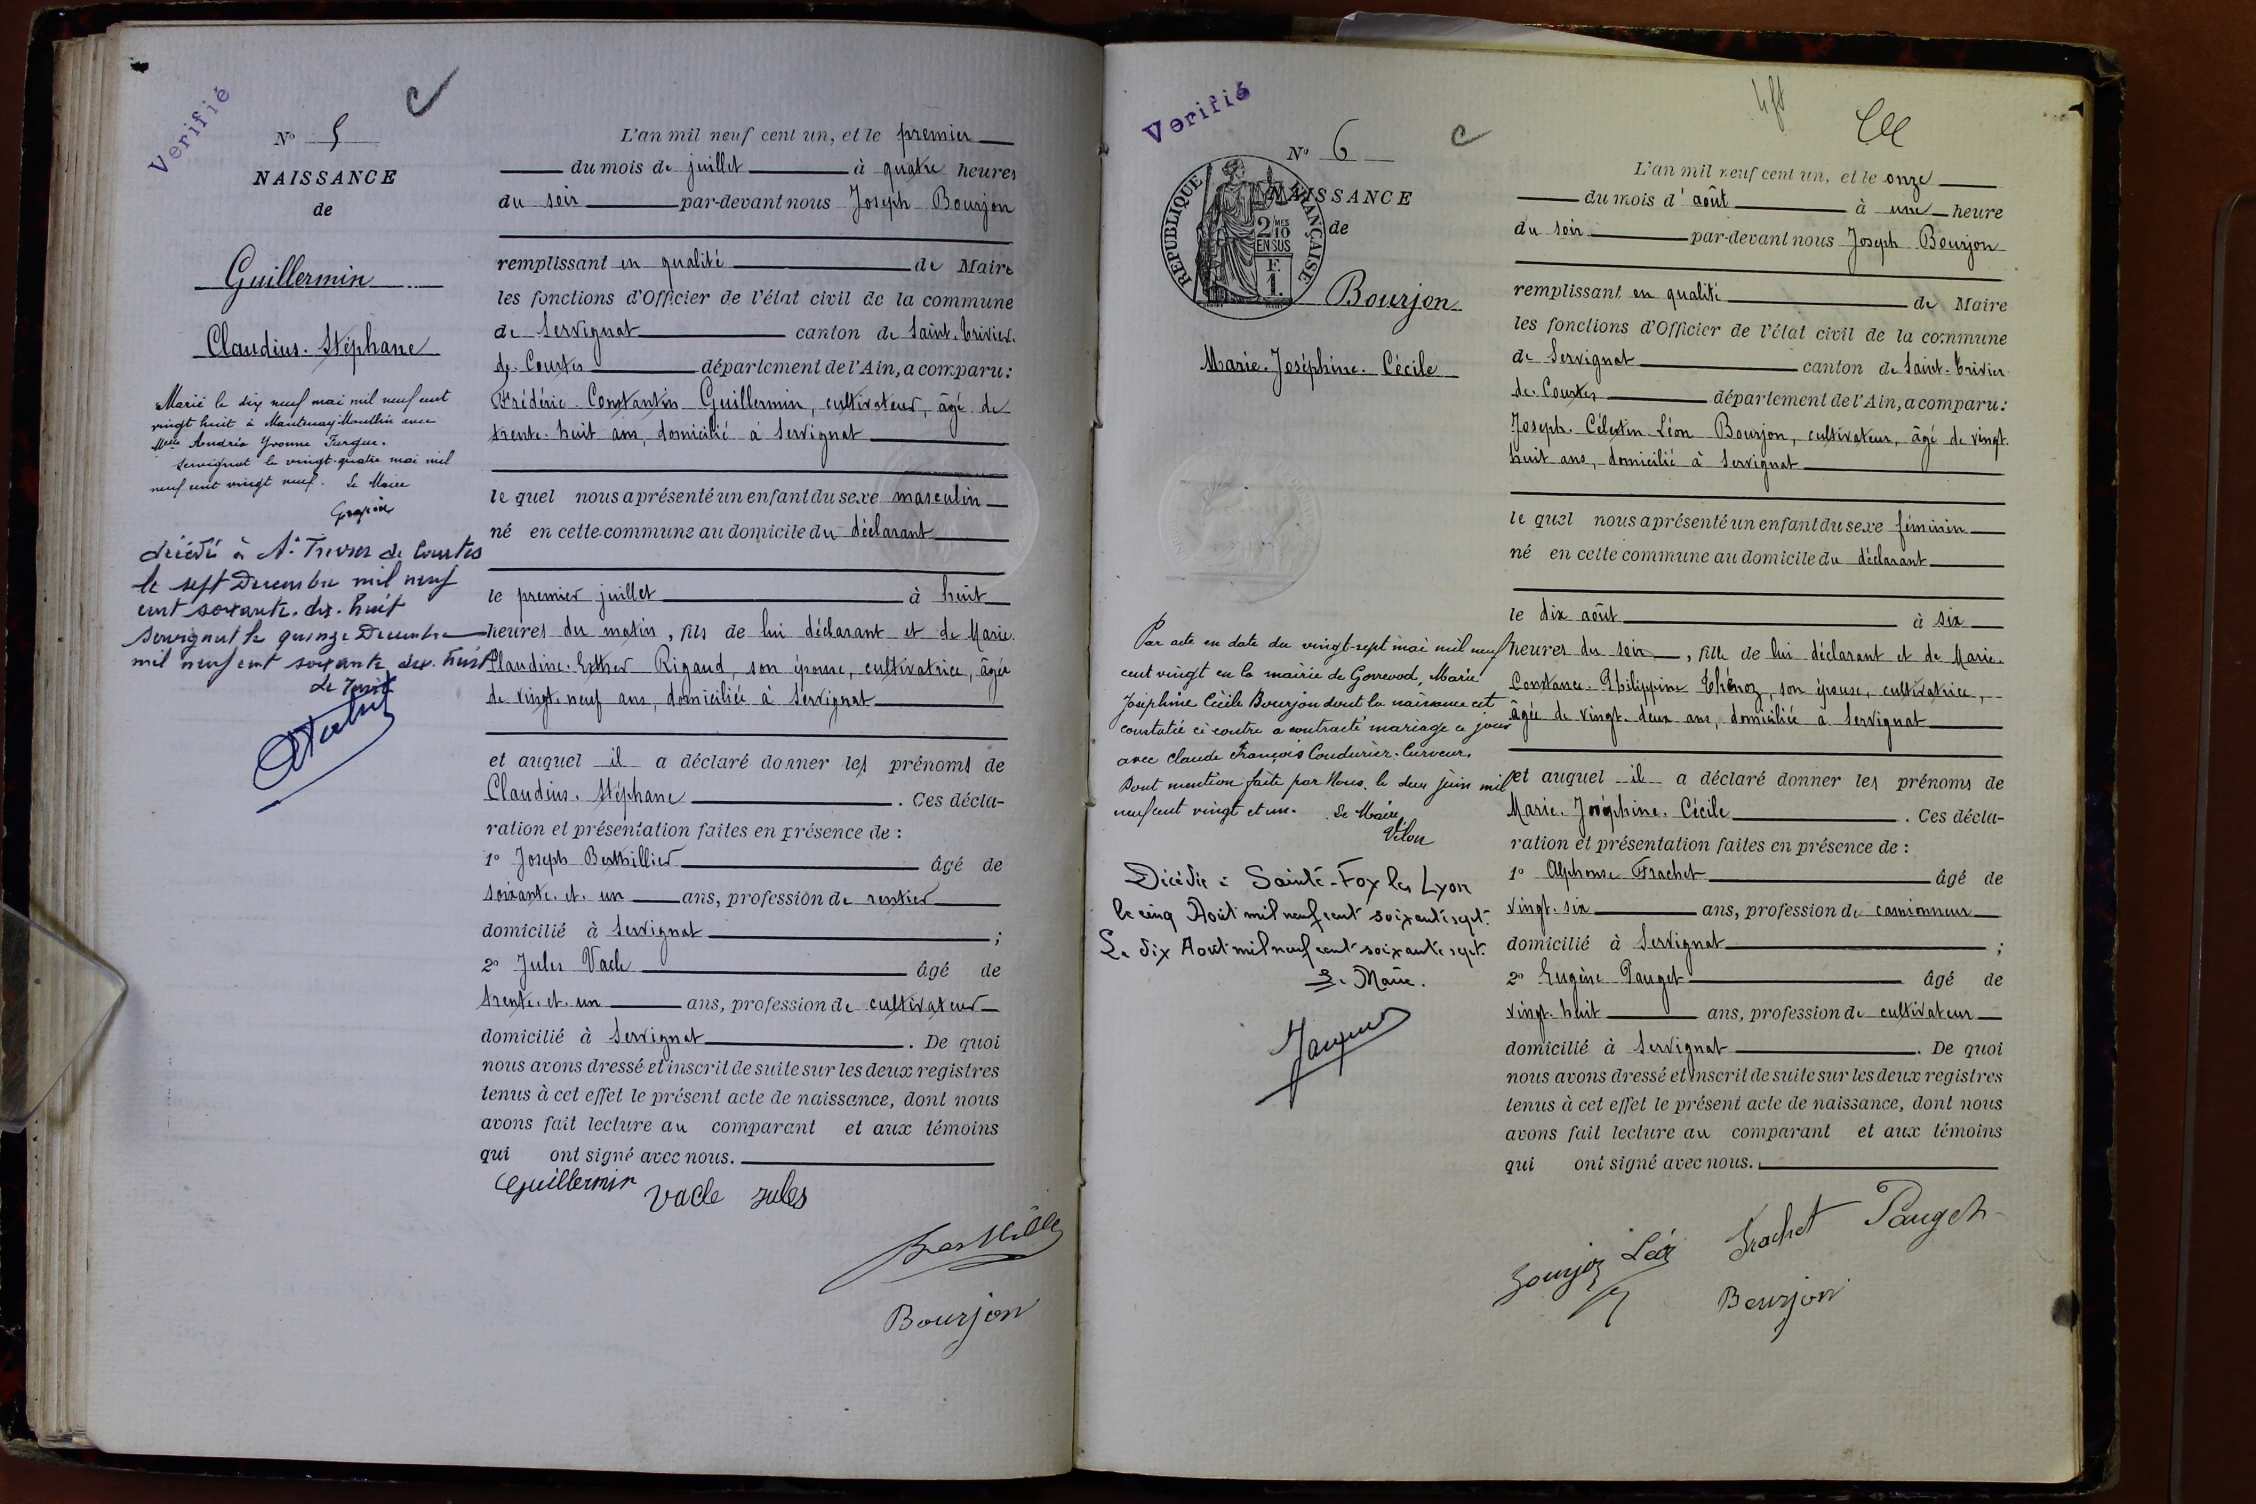 Verifié
c
N° 5
NAISSANCE
de
Guillermin
Claudius. Stéphane
Marié le dix neuf mai mil neuf cent
vingt huit à Mantenay Montlin avec
Mlle Andréa Yvonne
Servignat le vingt-quatre mai mil
neuf cent vingt neuf. Le Maire
décédé à St Trivier de Courtes
le sept Decembre mil neuf
cent soixante. dix. huit
Servignat le quinze Decembre
mil neuf cent soixante dix. huit
Le Maire
L'an mil neuf cent un, et le premier
du mois de juillet à quatre heures
du soir par-devant nous Joseph Bourjon
remplissant en qualité de Maire
les fonctions d'Officier de l'état civil de la commune
de Servignat canton de Saint. Trivier.
de. Courtes département de l'Ain, a comparu:
Frédéric. Constantin Guillermin, cultivateur, âgé de
trente. huit ans, domicilié à Servignat
le quel nous a présenté un enfant du sexe masculin
né en cette commune au domicile du déclarant
le premier juillet à huit
heures du matin, fils de lui déclarant et de Marie.
Claudine. Esther Rigaud, son épouse, cultivatrice, âgée
de vingt. neuf ans, domiciliée à Servignat
et auquel il a déclaré donner les prénoms de
Claudius. Stéphane. Ces décla-
ration et présentation faites en présence de :
1° Joseph Berthillier âgé de
soixante. et. un ans, profession de rentier
domicilié à Servignat ;
2° Jules Vacle âgé de
trente. et. un ans, profession de cultivateur
domicilié à Servignat. De quoi
nous avons dressé et inscrit de suite sur les deux registres
tenus à cet effet le présent acte de naissance, dont nous
avons fait lecture au comparant et aux témoins
qui ont signé avec nous.
Guillermin Vacle Jules
Berthillier
Bourjon
Verifié
N° 6
c
RÉPUBLIQUE FRANÇAISE
2 MES
10
EN SUS
F.
1.
NAISSANCE
de
Bourjon
Marie. Joséphine. Cécile
Par acte en date du vingt-sept mai mil neuf
cent vingt en la mairie de Gorrevod, Marie
Joséphine Cécile Bourjon dont la naissance est
constatée ci contre a contracté mariage ce jour
avec Claude François Coudurier-Curveur,
Dont mention faite par Nous. le deux juin mil
neuf cent vingt et un. Le Maire
Décédée à Sainte-Foy les Lyon
le cinq Août mil neuf cent soixante sept.
Le dix Août mil neuf cent soixante sept.
Le Maire.
L'an mil neuf cent un, et le onze
du mois d'août à une heure
du soir par-devant nous Joseph Bourjon
remplissant en qualité de Maire
les fonctions d'Officier de l'état civil de la commune
de Servignat canton de Saint. Trivier
de. Courtes département de l'Ain, a comparu:
Joseph. Célestin Léon Bourjon, cultivateur, âgé de vingt.
huit ans, domicilié à Servignat
le quel nous a présenté un enfant du sexe féminin
né en cette commune au domicile du déclarant
le dix août à six
heures du soir, fille de lui déclarant et de Marie.
Constance. Philippine Thénoz, son épouse, cultivatrice,
âgée de vingt. deux ans, domiciliée à Servignat
et auquel il a déclaré donner les prénoms de
Marie. Joséphine. Cécile. Ces décla-
ration et présentation faites en présence de :
1° Alphonse Frachet âgé de
vingt. six ans, profession de camionneur
domicilié à Servignat ;
2° Eugène Pauget âgé de
vingt. huit ans, profession de cultivateur
domicilié à Servignat. De quoi
nous avons dressé et inscrit de suite sur les deux registres
tenus à cet effet le présent acte de naissance, dont nous
avons fait lecture au comparant et aux témoins
qui ont signé avec nous.
Bourjon Léon Frachet Pauget
Bourjon